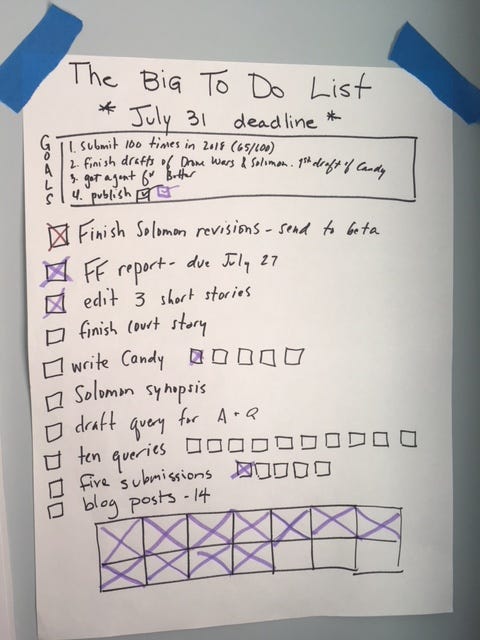 The Big To Do List
* July 31 deadline *
GOALS
1. submit 100 times in 2018 (65/100)
2. finish drafts of Drone Wars & Solomon. 1st draft of Candy
3. get agent for Butter
4. publish
Finish Solomon revisions - send to beta
FF report - due July 27
edit 3 short stories
finish court story
write Candy
Solomon synopsis
draft query for A + Q
ten queries
five submissions
blog posts - 14